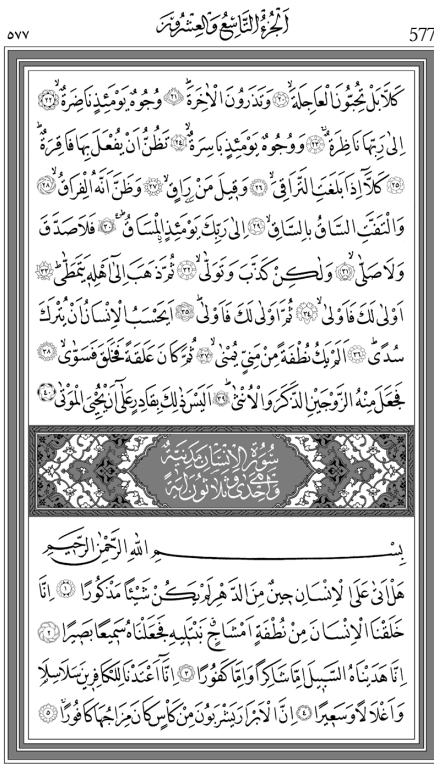 577
اَلْجُزْءُ التَّاسِعُ وَالْعِشْرُونَ
٥٧٧
كَلَّا بَلْ تُحِبُّونَ الْعَاجِلَةَۙ ﴿٢٠﴾ وَتَذَرُونَ الْاٰخِرَةَۜ ﴿٢١﴾ وُجُوهٌ يَوْمَئِذٍ نَاضِرَةٌۙ ﴿٢٢﴾
اِلٰى رَبِّهَا نَاظِرَةٌۚ ﴿٢٣﴾ وَوُجُوهٌ يَوْمَئِذٍ بَاسِرَةٌۙ ﴿٢٤﴾ تَظُنُّ اَنْ يُفْعَلَ بِهَا فَاقِرَةٌۜ
﴿٢٥﴾ كَلَّٓا اِذَا بَلَغَتِ التَّرَاقِيَۙ ﴿٢٦﴾ وَقِيلَ مَنْ رَاقٍۙ ﴿٢٧﴾ وَظَنَّ اَنَّهُ الْفِرَاقُۙ ﴿٢٨﴾
وَالْتَفَّتِ السَّاقُ بِالسَّاقِۙ ﴿٢٩﴾ اِلٰى رَبِّكَ يَوْمَئِذٍ الْمَسَاقُۜ ﴿٣٠﴾ فَلَا صَدَّقَ
وَلَا صَلّٰىۙ ﴿٣١﴾ وَلٰكِنْ كَذَّبَ وَتَوَلّٰىۙ ﴿٣٢﴾ ثُمَّ ذَهَبَ اِلٰٓى اَهْلِهِ يَتَمَطّٰىۜ ﴿٣٣﴾
اَوْلٰى لَكَ فَاَوْلٰىۙ ﴿٣٤﴾ ثُمَّ اَوْلٰى لَكَ فَاَوْلٰىۜ ﴿٣٥﴾ اَيَحْسَبُ الْاِنْسَانُ اَنْ يُتْرَكَ
سُدًىۜ ﴿٣٦﴾ اَلَمْ يَكُ نُطْفَةً مِنْ مَنِيٍّ يُمْنٰىۙ ﴿٣٧﴾ ثُمَّ كَانَ عَلَقَةً فَخَلَقَ فَسَوّٰىۙ ﴿٣٨﴾
فَجَعَلَ مِنْهُ الزَّوْجَيْنِ الذَّكَرَ وَالْاُنْثٰىۜ ﴿٣٩﴾ اَلَيْسَ ذٰلِكَ بِقَادِرٍ عَلٰٓى اَنْ يُحْيِيَ الْمَوْتٰى ﴿٤٠﴾
سُورَةُ الْاِنْسَانِ مَدَنِيَّةٌ
وَهِيَ اِحْدٰى وَثَلَاثُونَ اٰيَةً
بِسْمِ اللّٰهِ الرَّحْمٰنِ الرَّحِيمِ
هَلْ اَتٰى عَلَى الْاِنْسَانِ حِينٌ مِنَ الدَّهْرِ لَمْ يَكُنْ شَيْـًٔا مَذْكُورًا ﴿١﴾ اِنَّا
خَلَقْنَا الْاِنْسَانَ مِنْ نُطْفَةٍ اَمْشَاجٍۗ نَبْتَلِيهِ فَجَعَلْنَاهُ سَمِيعًا بَصِيرًا ﴿٢﴾
اِنَّا هَدَيْنَاهُ السَّبِيلَ اِمَّا شَاكِرًا وَاِمَّا كَفُورًا ﴿٣﴾ اِنَّٓا اَعْتَدْنَا لِلْكَافِرِينَ سَلَاسِلَا۬
وَاَغْلَالًا وَسَعِيرًا ﴿٤﴾ اِنَّ الْاَبْرَارَ يَشْرَبُونَ مِنْ كَأْسٍ كَانَ مِزَاجُهَا كَافُورًاۚ ﴿٥﴾